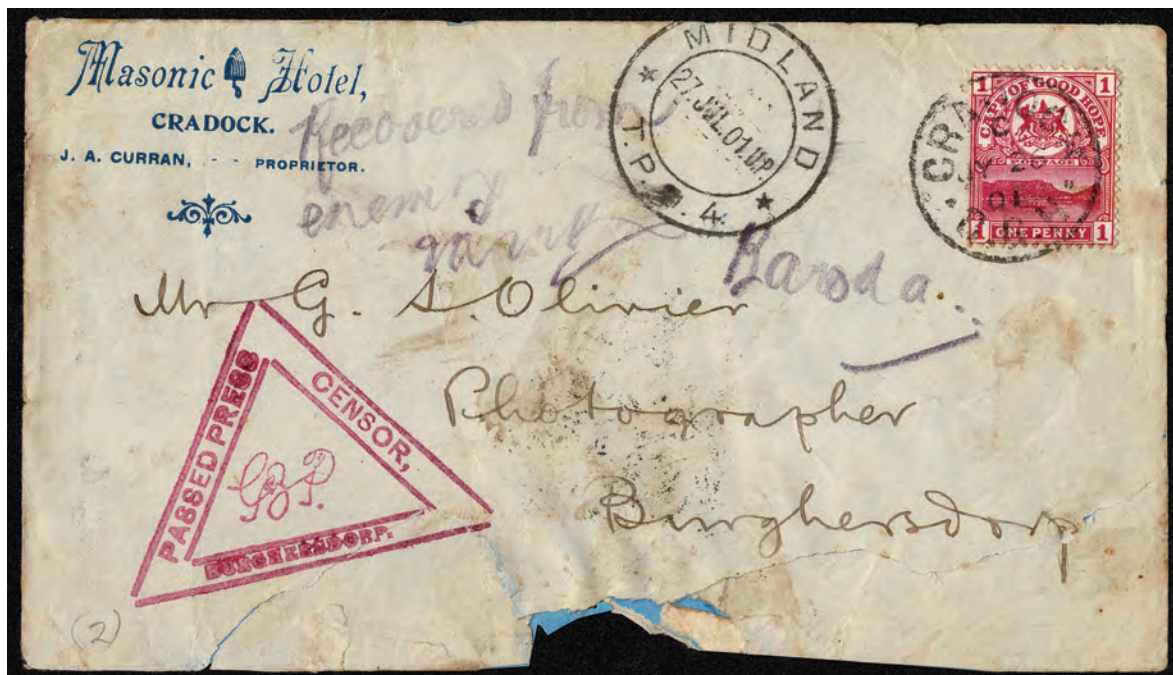 Masonic Hotel,
CRADOCK.
J. A. CURRAN, - - PROPRIETOR.
Recovered from
enemy
Baroda
MIDLAND
27 JUL.01.UP
T.P.O. 4.
CRADOCK
01
1 1
CAPE OF GOOD HOPE
POSTAGE
1 ONE PENNY 1
Mr G. S. Olivier
Photographer
Burghersdorp
PASSED PRESS
CENSOR,
BURGHERSDORP.
(2)